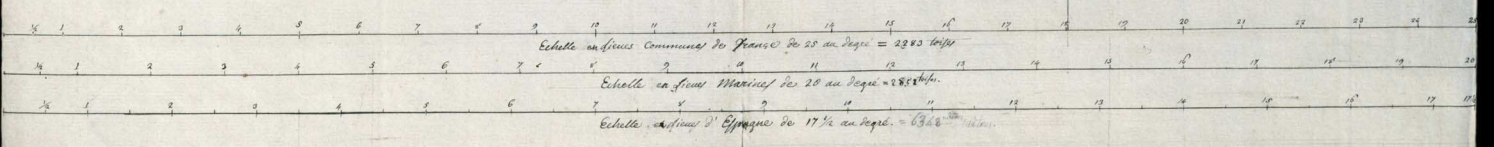 ½ 1 2 3 4 5 6 7 8 9 10 11 12 13 14 15 16 17 18 19 20 21 22 23 24 25
Echelle en Lieues Communes de France de 25 au degré = 2283 toises
½ 1 2 3 4 5 6 7 8 9 10 11 12 13 14 15 16 17 18 19 20
Echelle en Lieues Marines de 20 au degré = 2853 toises.
½ 1 2 3 4 5 6 7 8 9 10 11 12 13 14 15 16 17 17½
Echelle en Lieues d'Espagne de 17 ½ au degré.